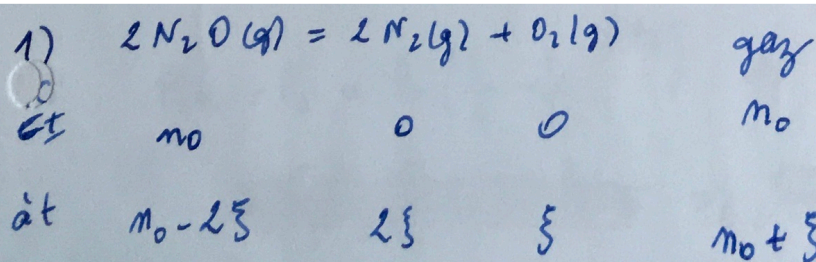 1) 2 N₂O(g) = 2 N₂(g) + O₂(g) gaz
Et n₀ 0 0 n₀
à t n₀ - 2ξ 2ξ ξ n₀ + ξ